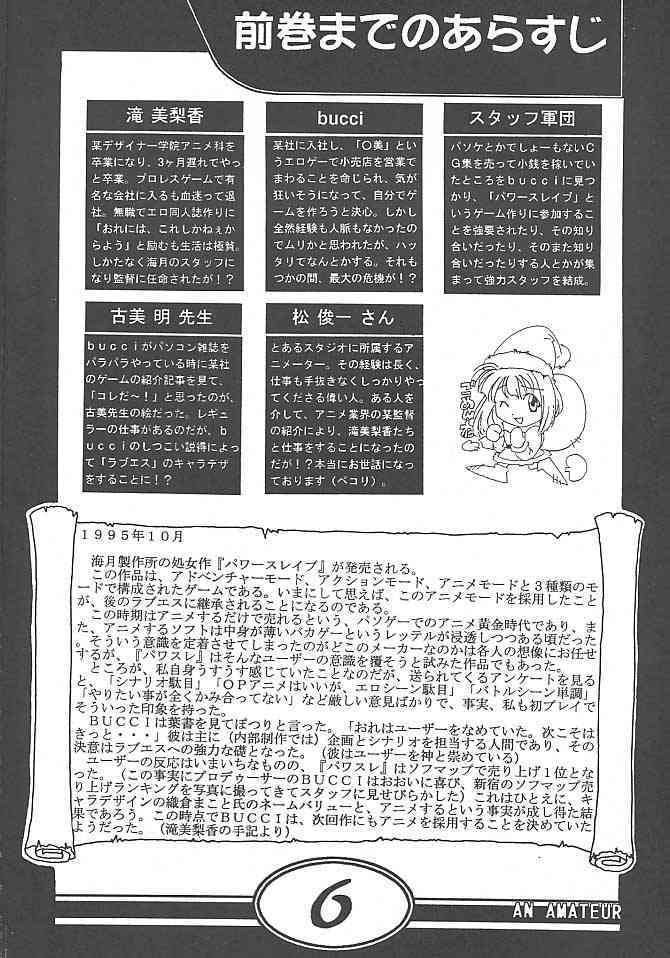 前巻までのあらすじ
滝 美梨香
某デザイナー学院アニメ科を
卒業になり、3ヶ月遅れてやっ
と卒業。プロレスゲームで有
名な会社に入るも血迷って退
社。無職でエロ同人誌作りに
「おれには、これしかねぇか
らよう」と励むも生活は極貧。
しかたなく海月のスタッフに
なり監督に任命されたが！？
bucci
某社に入社し、「〇美」とい
うエロゲーで小売店を営業で
まわることを命じられ、気が
狂いそうになって、自分でゲ
ームを作ろうと決心。しかし
全然経験も人脈もなかったの
でムリかと思われたが、ハッ
タリでなんとかする。それも
つかの間、最大の危機が！？
スタッフ軍団
パソケとかでしょーもないC
G集を売って小銭を稼いでい
たところをbucciに見つ
かり、「パワースレイブ」と
いうゲーム作りに参加するこ
とを強要されたり、その知り
合いだったり、そのまた知り
合いだったりする人とかが集
まって強力スタッフを結成。
古美 明 先生
bucciがパソコン雑誌を
パラパラやっている時に某社
のゲームの紹介記事を見て、
「コレだ～！」と思ったのが、
古美先生の絵だった。レギュ
ラーの仕事があるのだが、b
ucciのしつこい説得によっ
て「ラブエス」のキャラデザ
をすることに！？
松 俊一 さん
とあるスタジオに所属するア
ニメーター。その経験は長く、
仕事も手抜きなくしっかりやっ
てくださる偉い人。ある人を
介して、アニメ業界の某監督
の紹介により、滝美梨香たち
と仕事をすることになったの
だが！？本当にお世話になっ
ております（ペコリ）。
ごめんね
1995年10月
海月製作所の処女作『パワースレイブ』が発売される。
この作品は、アドベンチャーモード、アクションモード、アニメモードと3種類のモ
ードで構成されたゲームである。いまにして思えば、このアニメモードを採用したこと
が、後のラブエスに継承されることになるのである。
この時期はアニメするだけで売れるという、パソゲーでのアニメ黄金時代であり、ま
た、アニメするソフトは中身が薄いバカゲーというレッテルが浸透しつつある頃だった
。そういう意識を定着させてしまったのがどこのメーカーなのかは各人の想像にお任せ
するが、『パワスレ』はそんなユーザーの意識を覆そうと試みた作品でもあった。
ところが、私自身うすうす感じていたことなのだが、送られてくるアンケートを見る
と、「シナリオ駄目」「OPアニメはいいが、エロシーン駄目」「バトルシーン単調」
「やりたい事が全くかみ合ってない」など厳しい意見ばかりで、事実、私も初プレイで
そういった印象を持った。
BUCCIは葉書を見てぽつりと言った。「おれはユーザーをなめていた。次こそは
きっと・・・」彼は主に（内部制作では）企画とシナリオを担当する人間であり、その
決意はラブエスへの強力な礎となった。（彼はユーザーを神と崇めている）
ユーザーの反応はいまいちなものの、『パワスレ』はソフマップで売り上げ1位とな
った。（この事実にプロデゥーサーのBUCCIはおおいに喜び、新宿のソフマップ売
り上げランキングを写真に撮ってきてスタッフに見せびらかした）これはひとえに、キ
ャラデザインの織倉まこと氏のネームバリューと、アニメするという事実が成し得た結
果であろう。この時点でBUCCIは、次回作にもアニメを採用することを決めていた
ようだった。（滝美梨香の手記より）
6
AN AMATEUR